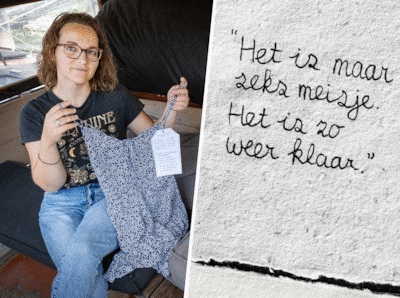 "Het is maar
seks meisje.
Het is zo
weer klaar."